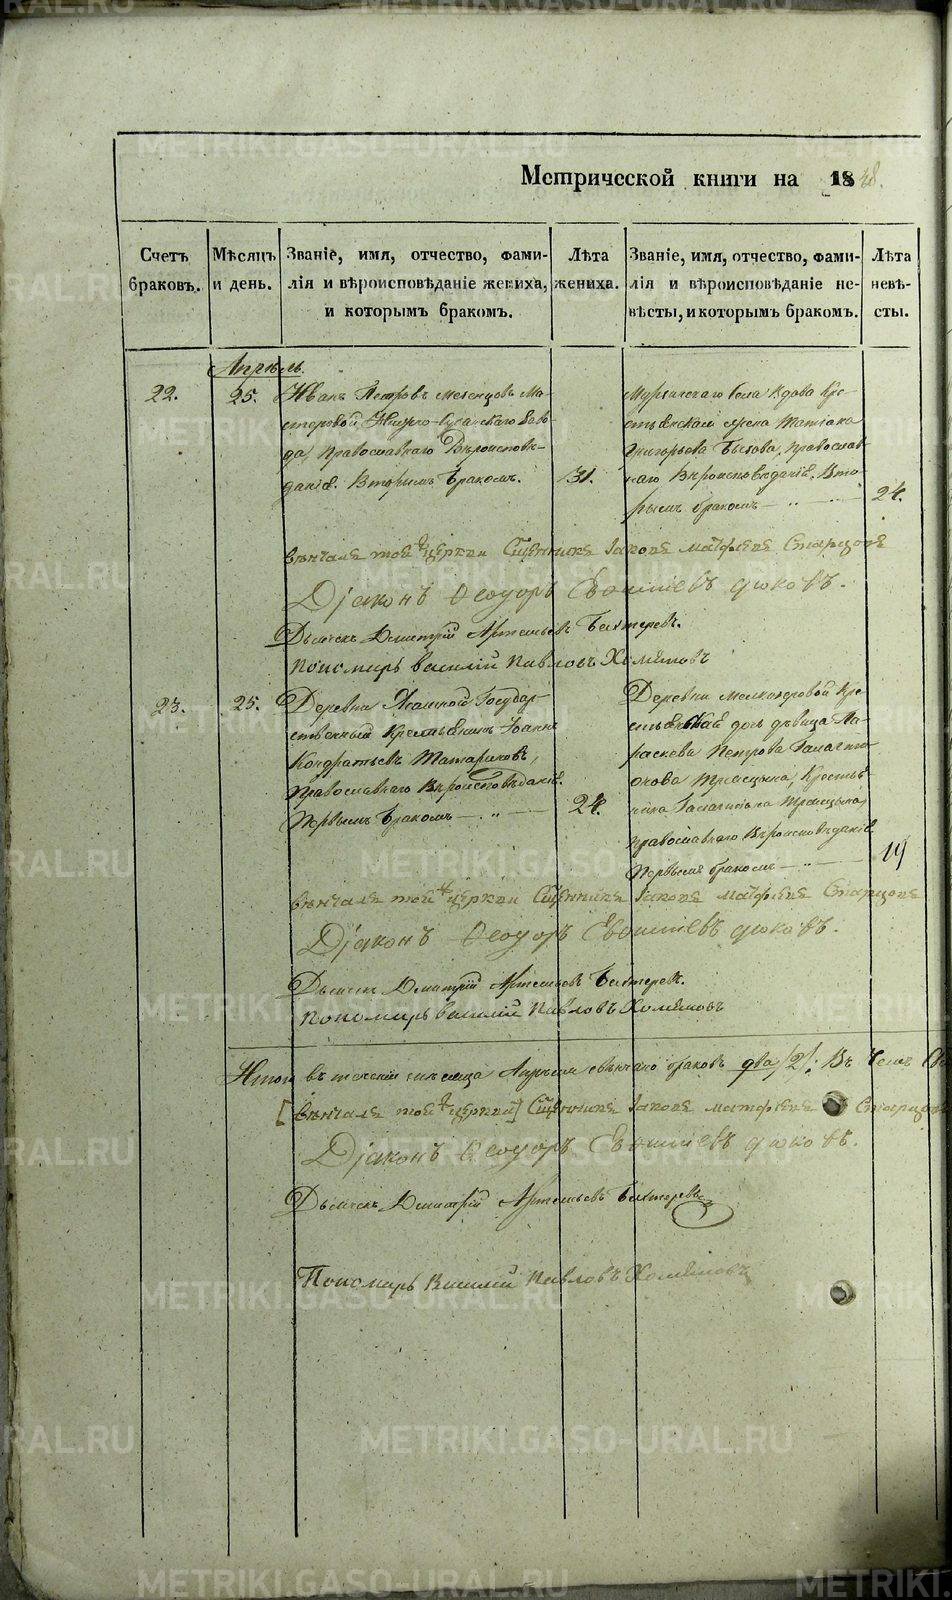 Метрической книги на 1848.
Счетъ браковъ.
Мѣсяцъ и день.
Званіе, имя, отчество, фамилія и вѣроисповѣданіе жениха, и которымъ бракомъ.
Лѣта жениха.
Званіе, имя, отчество, фамилія и вѣроисповѣданіе невѣсты, и которымъ бракомъ.
Лѣта невѣсты.
Апрѣль.
22.
25.
Иванъ Петровъ Мезенцовъ Ма-
стеровой Нижне-Сусанскаго Заво-
да, Православнаго Вѣроисповѣ-
данія. Вторымъ Бракомъ.
31.
Села Вдова Кре-
стьянская жена Татіана
Григорьева Быкова, Православ-
наго Вѣроисповѣданія. Вто-
рымъ бракомъ
24.
вѣнчалъ той церкви Сщенникъ Іаковъ Матфеевъ Старцовъ
Діаконъ Ѳеодоръ
Дьячекъ Димитрій Артемьевъ Бехтеревъ.
Пономарь Василій Павловъ Хомяковъ
23.
25.
Деревни Государ-
ственный Крестьянинъ Іоаннъ
Кондратьевъ Татариновъ,
Православнаго Вѣроисповѣданія.
Первымъ Бракомъ
24.
Деревни Мелкозеровой Кре-
стьянская дочь дѣвица Па-
раскева Петрова
Православнаго Вѣроисповѣданія
Первымъ бракомъ
19
вѣнчалъ той церкви Сщенникъ Іаковъ Матфеевъ Старцовъ
Діаконъ Ѳеодоръ
Дьячекъ Димитрій Артемьевъ Бехтеревъ.
Пономарь Василій Павловъ Хомяковъ
Итого въ теченіи месяца Апреля свѣнчано браковъ два /2/: Въ чемъ
[вѣнчалъ той церкви] Сщенникъ Іаковъ Матфеевъ Старцовъ
Діаконъ Ѳеодоръ
Дьячекъ Димитрій Артемьевъ Бехтеревъ
Пономарь Василій Павловъ Хомяковъ
METRIKI.GASO-URAL.RU